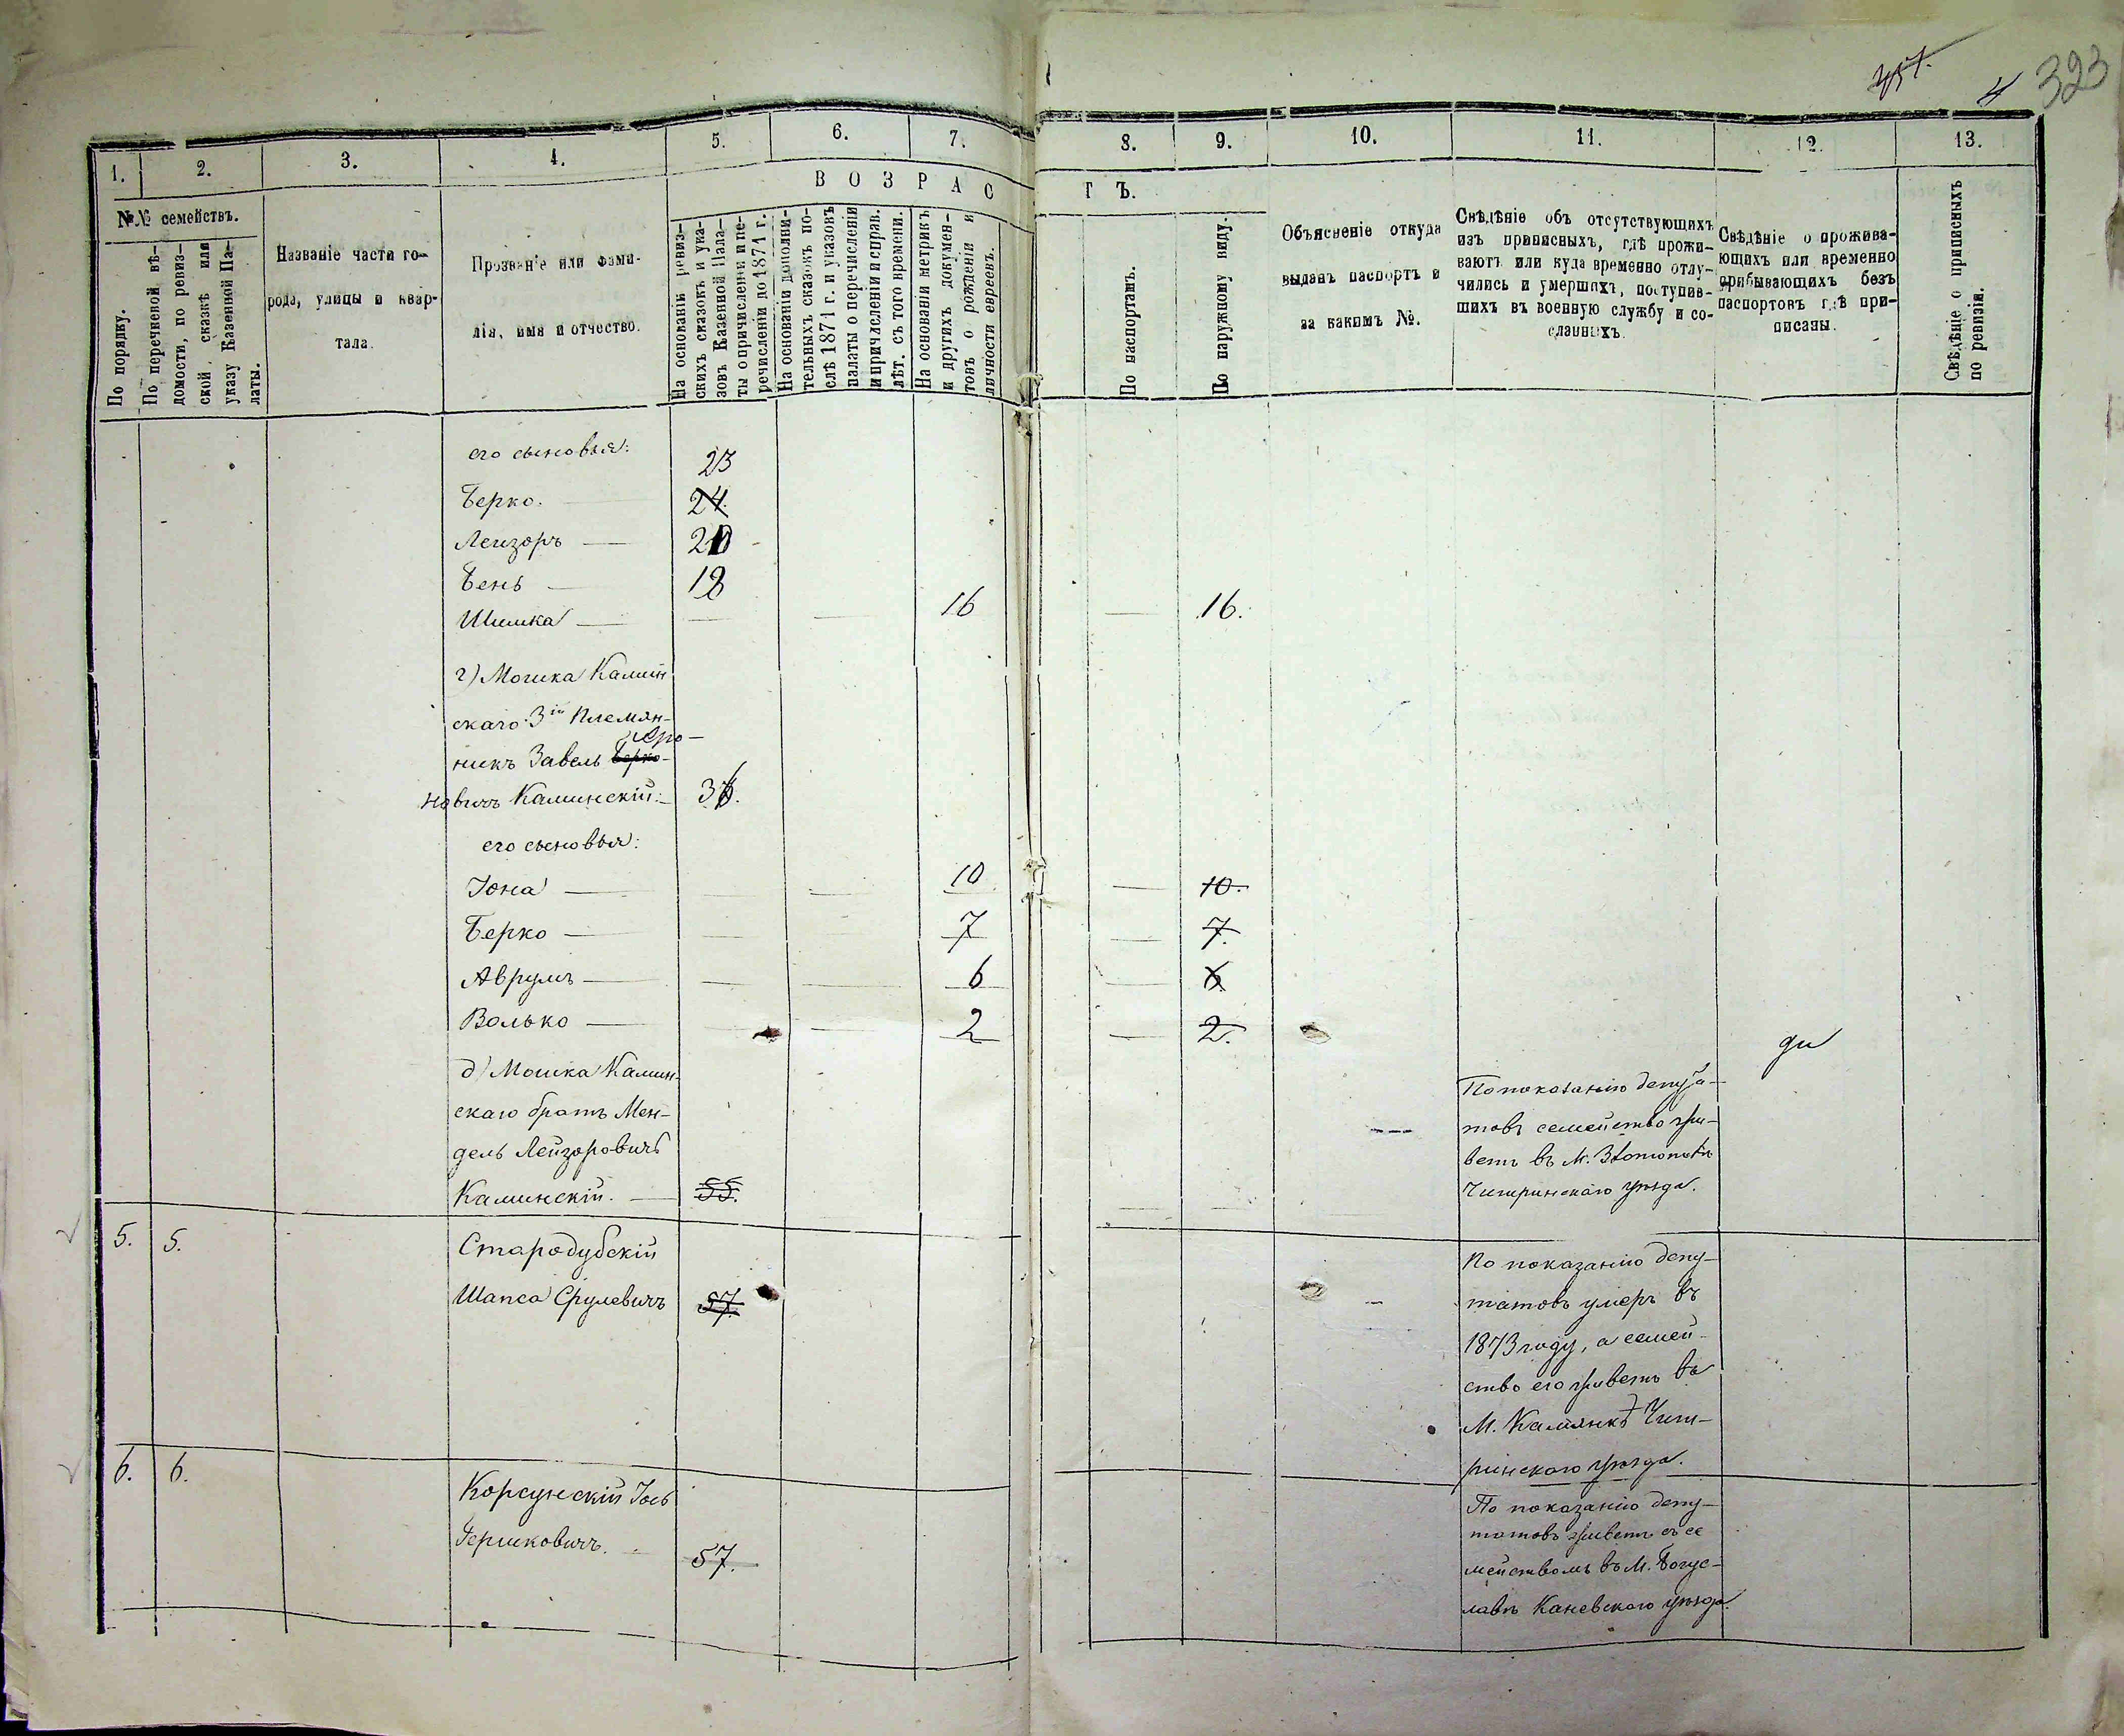 323
4
1.
2.
3.
4.
5.
6.
7.
8.
9.
10.
11.
12.
13.
В О З Р А С Т Ъ.
№№ семействъ.
По порядку.
По перечневой вѣ-
домости, по ревиз-
ской сказкѣ или
указу Казенной Па-
латы.
Названіе части го-
рода, улицы и квар-
тала.
Прозваніе или фами-
лія, имя и отчество.
На основаніи ревиз-
скихъ сказокъ и ука-
зовъ Казенной Пала-
ты о причисленіи и пе-
речисленіи до 1871 г.
На основаніи дополни-
тельныхъ сказокъ по-
слѣ 1871 г. и указовъ
палаты о перечисленіи
и причисленіи и справ.
лѣт. съ того времени.
На основаніи метрикъ
и другихъ докумен-
товъ о рожденіи и
личности евреевъ.
По паспортамъ.
По наружному виду.
Объясненіе откуда
выданъ паспортъ и
за какимъ №.
Свѣдѣніе объ отсутствующихъ
изъ приписныхъ, гдѣ прожи-
ваютъ или куда временно отлу-
чились и умершихъ, поступив-
шихъ въ военную службу и со-
сланныхъ.
Свѣдѣніе о прожива-
ющихъ или временно
прибывающихъ безъ
паспортовъ гдѣ при-
писаны.
Свѣдѣніе о приписныхъ
по ревизіи.
его сыновья:
23
Берко. 24.
Лейзоръ 20
Бень 18
Шимка 16 16.
г) Мошка Камин
скаго 3ій Племян-
никъ Завель Берко-
новичъ Каминскій: 36.
его сыновья:
Іона 10 10.
Берко 7 7.
Аврумъ 6 6
Волько 2 2.
д) Мошка Камин-
скаго братъ Мен-
дель Лейзоровичъ
Каминскій. 55.
По показанію депута-
товъ семейство жи-
ветъ въ М.
Чигиринскаго уѣзда.
5. 5.
Стародубскій
Шапса Срулевичъ 57.
По показанію депу-
татовъ умеръ въ
1873 году, а семей-
ство его живетъ въ
М. Камянкѣ Чиги-
ринскаго уѣзда.
6. 6.
Корсунскій Іось
Гершковичъ. 57.
По показанію депу-
татовъ живетъ съ се
мействомъ въ М. Богус-
лавѣ Каневскаго уѣзда.